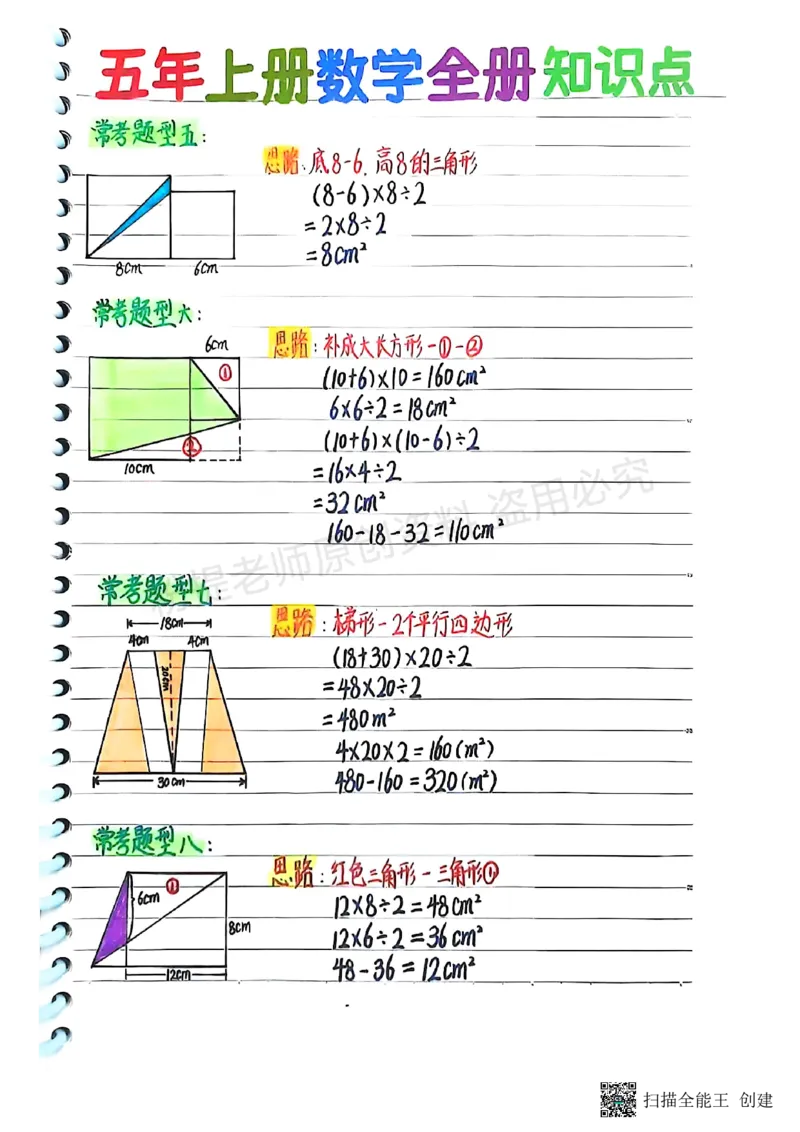 五年上册数学全册知识点
常考题型五:
思路:底8-6,高8的三角形
(8-6)×8÷2
=2×8÷2
=8cm²
8cm 6cm
常考题型六:
思路:补成大长方形-①-②
6cm
①
②
10cm
(10+6)×10=160cm²
6×6÷2=18cm²
(10+6)×(10-6)÷2
=16×4÷2
=32cm²
160-18-32=110cm²
老师原创资料 盗用必究
常考题型七:
思路:梯形-2个平行四边形
18cm
4cm 4cm
20cm
30cm
(18+30)×20÷2
=48×20÷2
=480m²
4×20×2=160(m²)
480-160=320(m²)
常考题型八:
思路:红色三角形-三角形①
①
6cm
8cm
12cm
12×8÷2=48cm²
12×6÷2=36cm²
48-36=12cm²
扫描全能王 创建